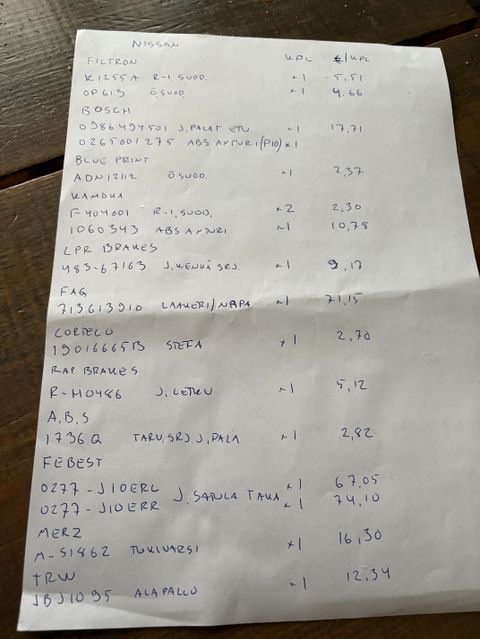 NISSAN
FILTRON KPL €/KPL
K1255A R-I, SUOD. ×1 5,51
OP613 Ö, SUOD. ×1 4,66
BOSCH
0986494501 J. PALAT ETU ×1 17,71
0265001275 ABS ANTURI (P10) ×1
BLUE PRINT
ADN12112 ÖSUOD. ×1 2,37
KAMOKA
F404001 R-I, SUOD. ×2 2,30
1060343 ABS ANTURI ×1 10,78
LPR BRAKES
483-67163 J. KENKÄ SRJ. ×1 9,17
FAG
713613910 LAAKERI/NAPA ×1 71,15
CORTECO
19016665B STEFA ×1 2,70
RAP BRAKES
R-H0486 J. LETKU ×1 5,12
A,B,S
1736Q TARV, SRJ. J, PALA ×1 2,82
FEBEST
0277-J10ERL J. SATULA TAKA ×1 67,05
0277-J10ERR ×1 74,10
MERZ
M-S1862 TUKIVARSI ×1 16,30
TRW
JBJ1095 ALAPALLO ×1 12,34